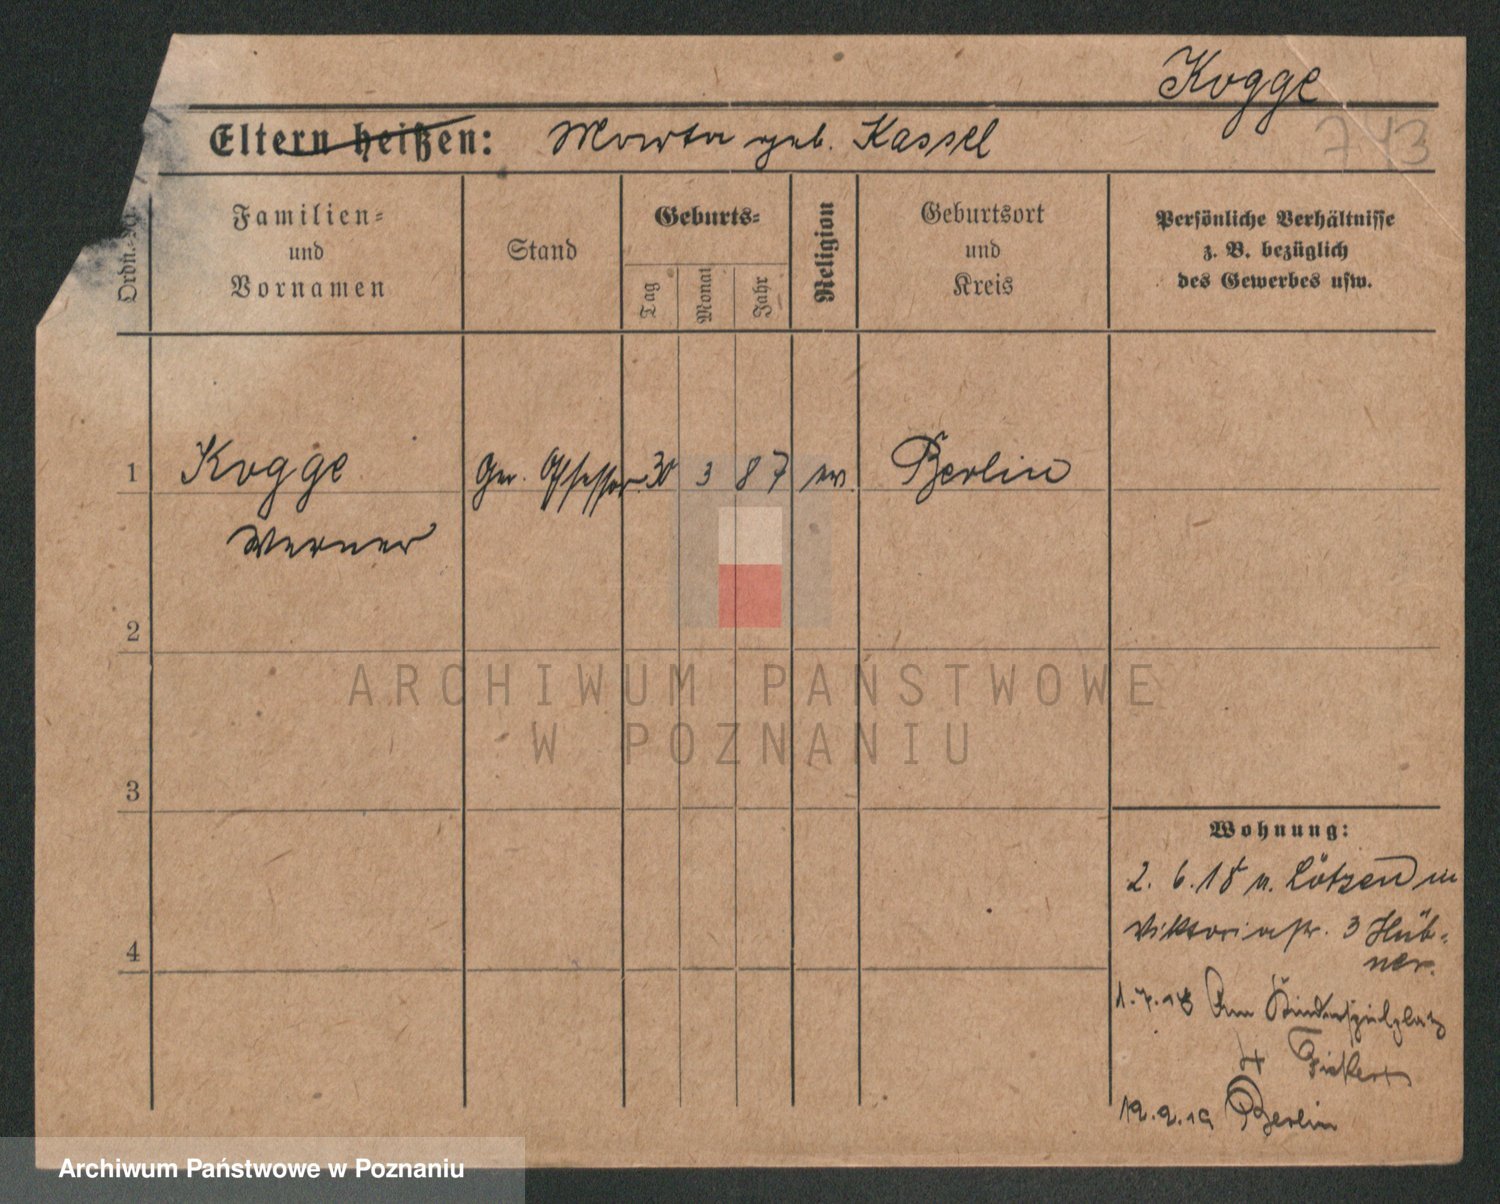 Kogge
Eltern heißen: Marta geb. Kassel
743
Ordn.
Familien-
und
Vornamen
Stand
Geburts-
Tag
Monat
Jahr
Religion
Geburtsort
und
Kreis
Persönliche Verhältnisse
z. B. bezüglich
des Gewerbes usw.
1 Kogge Ger. Assessor 30 3 87 ev. Berlin
Werner
2
3
4
Wohnung:
2. 6. 18 v. Lötzen
Viktoriastr. 3 Hüb-
ner.
1.7.18 Am Kinderspielplatz
4
Berlin
ARCHIWUM PAŃSTWOWE
W POZNANIU
Archiwum Państwowe w Poznaniu